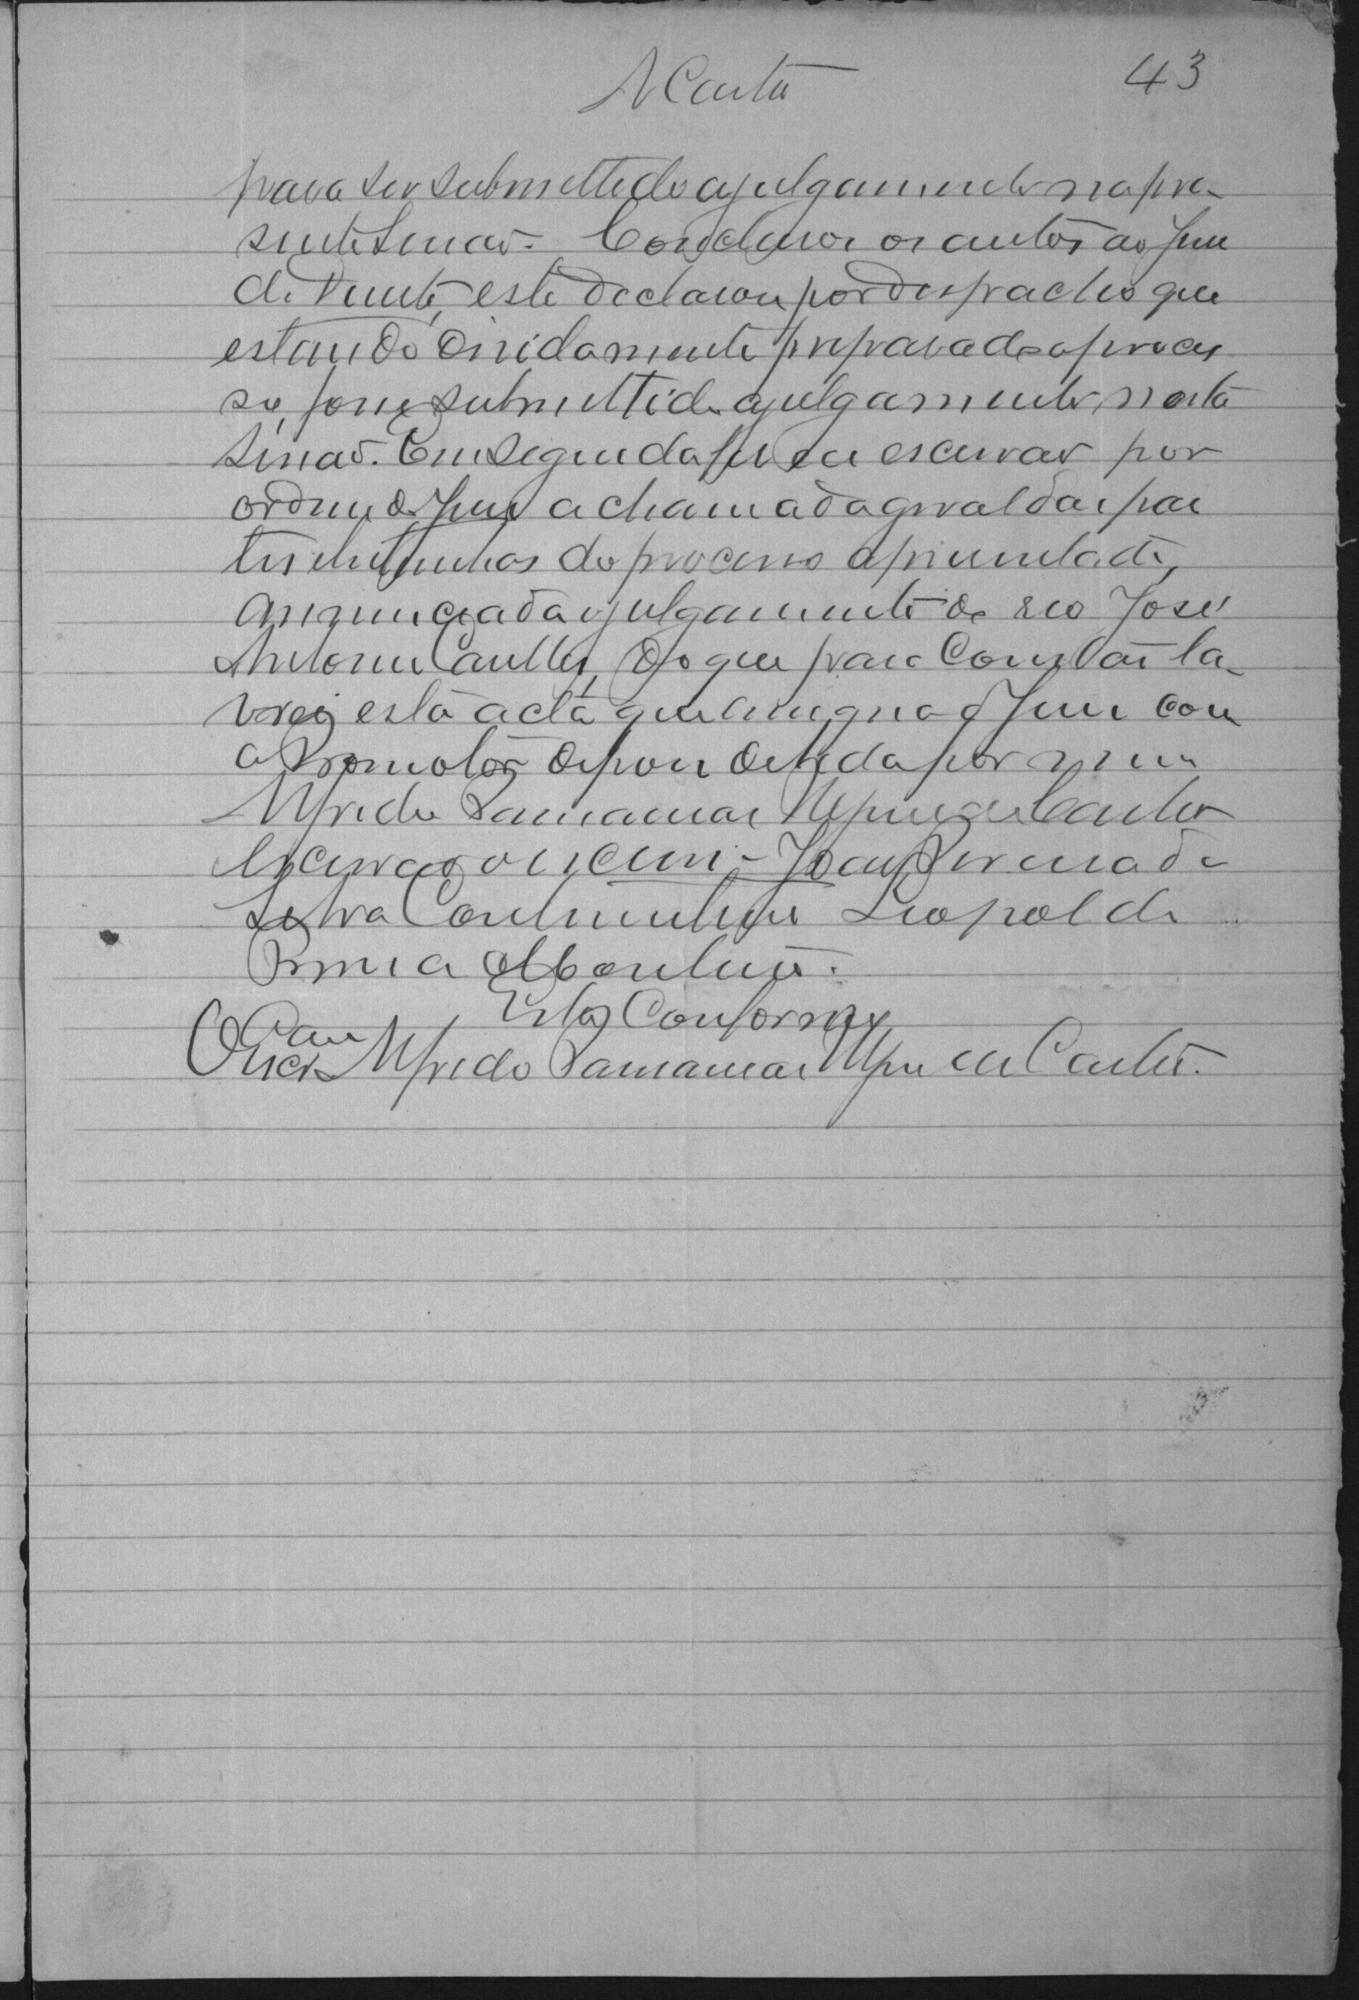 ACosta 43
para ser submettido a julgamento na pre-
sente sessão. Conclusos os autos ao Juiz
de Direito, este declarou por despacho que
estando devidamente preparado o proces
so, fosse submettido a julgamento nesta
sessão. Em seguida fiz eu escrivão por
ordem do Juiz a chamada geral das par
tes e testemunhas do processo apresentado,
annunciada o julgamento do reo José
Antonio Do que para constar la-
vrei esta acta que assignão o Juiz com
o Promotor depois de lida por mim
Alfredo Costa
Escrivão o escrevi - João Pereira da
Silva Leopoldo
Monteiro.
Está Conforme
O Escrvam Alfredo Costa.